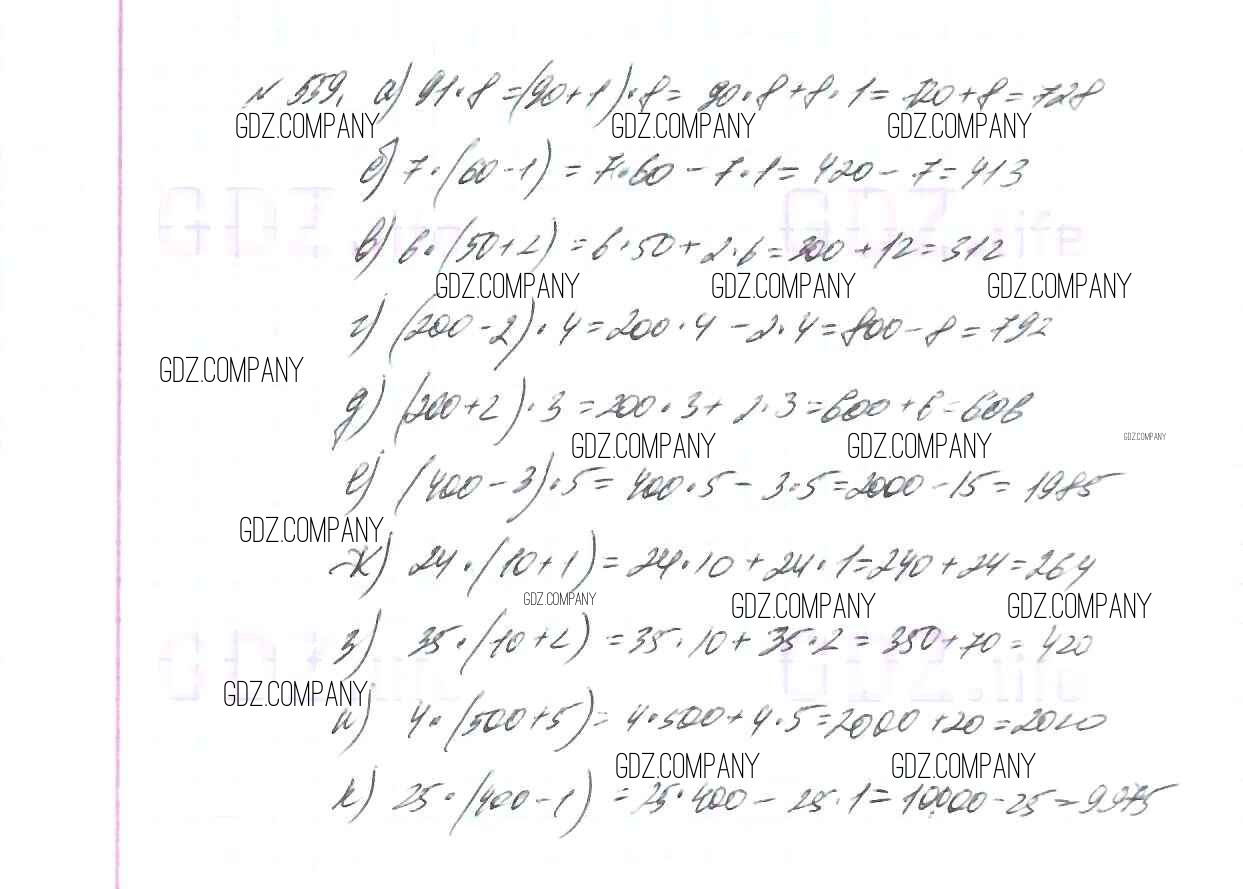 № 559. а) 91·8=(90+1)·8= 90·8+8·1= 720+8=728
GDZ.COMPANY GDZ.COMPANY GDZ.COMPANY
б) 7·(60-1) = 7·60 - 7·1 = 420 - 7 = 413
GDZ.life GDZ.life
в) 6·(50+2) = 6·50 + 2·6 = 300 + 12 = 312
GDZ.COMPANY GDZ.COMPANY GDZ.COMPANY
г) (200-2)·4 = 200·4 - 2·4 = 800 - 8 = 792
GDZ.COMPANY
д) (200+2)·3 = 200·3 + 2·3 = 600 + 6 = 606
GDZ.COMPANY GDZ.COMPANY GDZ.COMPANY
е) (400-3)·5 = 400·5 - 3·5 = 2000 - 15 = 1985
GDZ.COMPANY
ж) 24·(10+1) = 24·10 + 24·1 = 240 + 24 = 264
GDZ.COMPANY GDZ.COMPANY GDZ.COMPANY
з) 35·(10+2) = 35·10 + 35·2 = 350 + 70 = 420
GDZ.life GDZ.life
GDZ.COMPANY
и) 4·(500+5) = 4·500 + 4·5 = 2000 + 20 = 2020
GDZ.COMPANY GDZ.COMPANY
к) 25·(400-1) = 25·400 - 25·1 = 10000 - 25 = 9975